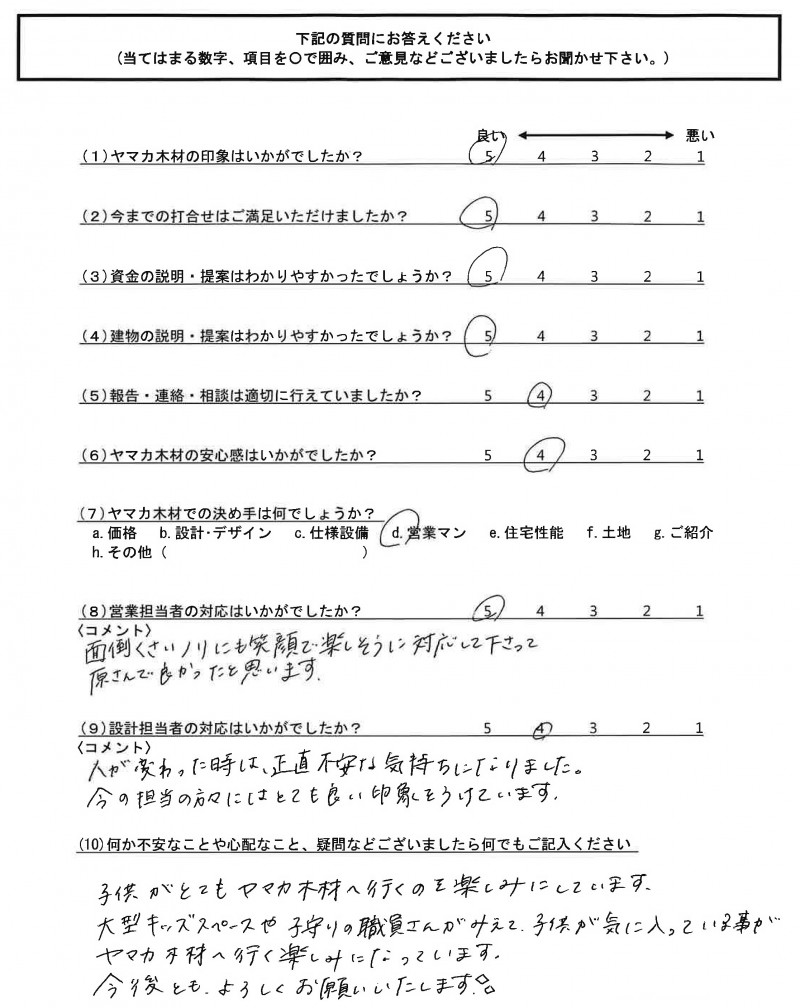 下記の質問にお答えください
(当てはまる数字、項目を〇で囲み、ご意見などございましたらお聞かせ下さい。)
良い 悪い
(1)ヤマカ木材の印象はいかがでしたか? 5 4 3 2 1
(2)今までの打合せはご満足いただけましたか? 5 4 3 2 1
(3)資金の説明・提案はわかりやすかったでしょうか? 5 4 3 2 1
(4)建物の説明・提案はわかりやすかったでしょうか? 5 4 3 2 1
(5)報告・連絡・相談は適切に行えていましたか? 5 4 3 2 1
(6)ヤマカ木材の安心感はいかがでしたか? 5 4 3 2 1
(7)ヤマカ木材での決め手は何でしょうか?
a.価格 b.設計・デザイン c.仕様設備 d.営業マン e.住宅性能 f.土地 g.ご紹介
h.その他( )
(8)営業担当者の対応はいかがでしたか? 5 4 3 2 1
〈コメント〉
面倒くさいノリにも笑顔で楽しそうに対応して下さって
原さんで良かったと思います。
(9)設計担当者の対応はいかがでしたか? 5 4 3 2 1
〈コメント〉
人が変わった時は、正直不安な気持ちになりました。
今の担当の方々にはとても良い印象をうけています。
(10)何か不安なことや心配なこと、疑問などございましたら何でもご記入ください
子供がとてもヤマカ木材へ行くのを楽しみにしています。
大型キッズスペースや子守りの職員さんがみえて、子供が気に入っている事が
ヤマカ木材へ行く楽しみになっています。
今後とも、よろしくお願いいたします。